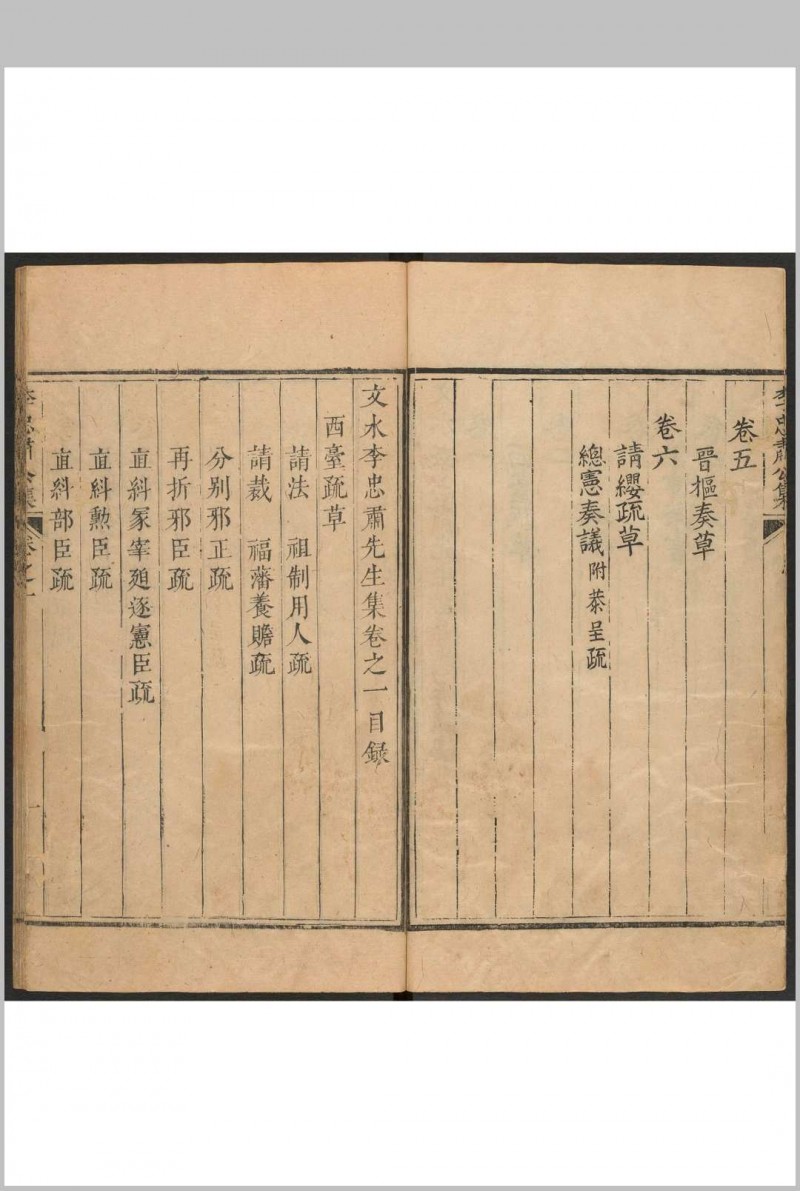 李忠肅公集
卷五
晉樞奏草
卷六
請纓疏草
總憲奏議附恭呈疏
文水李忠肅先生集卷之一目録
西臺疏草
請法　祖制用人疏
請裁　福藩養贍疏
分别邪正疏
再折邪臣疏
直糾冢宰廹逐憲臣疏
直糾勲臣疏
直糾部臣疏
李忠肅公集　卷之一
一